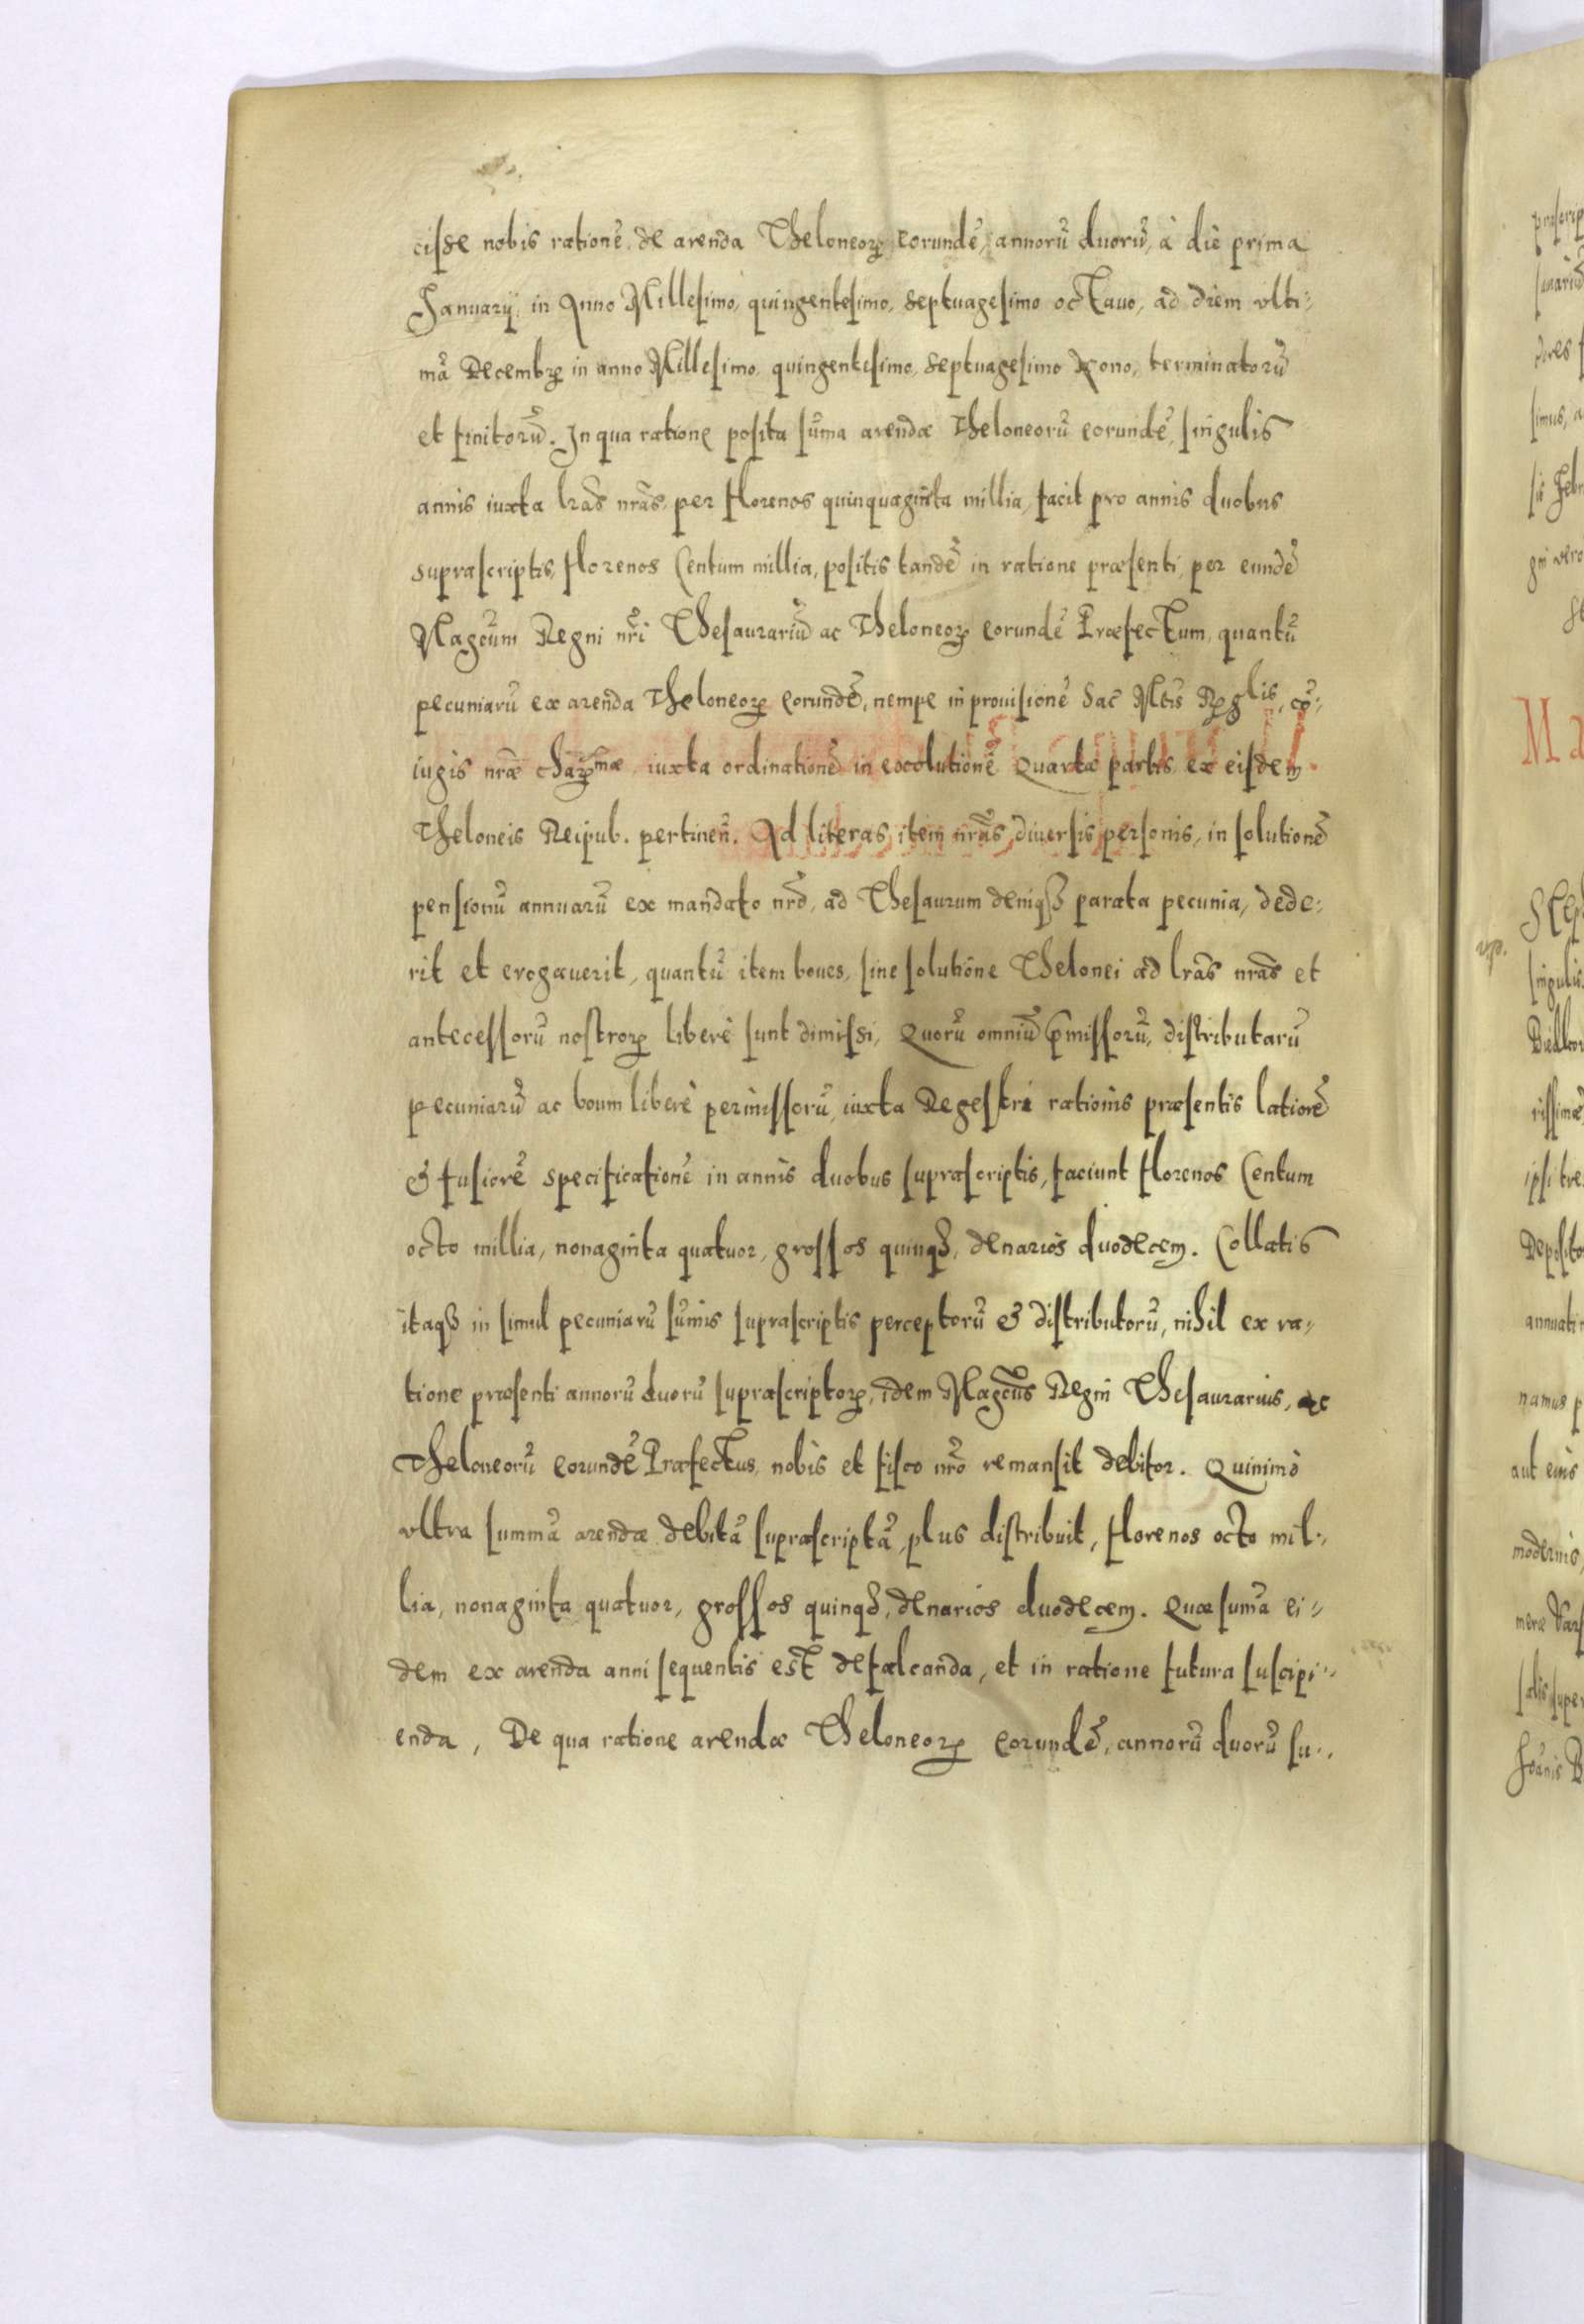 cisse nobis rationẽ de arenda Theloneoꝝ eorundẽ, annorũ duorũ, à die prima
Januarij in Anno Millesimo, quingentesimo, septuagesimo octauo, ad diem vlti-
mã Decembꝝ in anno Millesimo quingentesimo septuagesimo Nono, terminatorũ
et finitorũ. In qua ratione posita sũma arendæ Theloneorũ eorundẽ, singulis
annis iuxta lrãs nrãs per florenos quinquaginta millia, facit pro annis duobus
suprascriptis, florenos Centum millia, positis tandẽ in ratione præsenti, per eundẽ
Magcũm Regni nrĩ Thesaurariũ ac Theloneoꝝ eorundẽ Præfectum, quantũ
pecuniarũ ex arenda Theloneoꝝ eorundẽ, nempe in prouisionẽ Sac Mtis Rglis, cõ-
iugis nræ chaꝝmæ iuxta ordinationẽ in exolutionẽ Quartæ partis ex eisdem
Theloneis Reipub. pertineñ. Ad literas item nrãs, diuersis personis, in solutionẽ
pensionũ annuarũ ex mandato nrõ, ad Thesaurum deniqꝫ parata pecunia, dede-
rit et erogauerit, quantũ item boues, sine solutione Thelonei ad lrãs nrãs et
antecessorũ nostroꝝ liberè sunt dimissi, Quorũ omniũ p̃missorũ, distributarũ
pecuniarũ ac boum liberè permissorũ, iuxta Regestri rationis præsentis latiorẽ
& fusiorẽ specificationẽ in annis duobus suprascriptis, faciunt florenos Centum
octo millia, nonaginta quatuor, grossos quinqꝫ, denarios duodecem. Collatis
itaqꝫ in simul pecuniarũ sũmis suprascriptis perceptorũ & distributorũ, nihil ex ra-
tione præsenti annorũ duorũ suprascriptoꝝ, idem Magcũs Regni Thesaurarius, ac
Theloneorũ eorundẽ Præfectus, nobis et fisco nrõ remansit debitor. Quinimò
vltra summã arendæ debitã suprascriptã, plus distribuit, florenos octo mil-
lia, nonaginta quatuor, grossos quinqꝫ, denarios duodecem. Quæ sum̃a ei-
dem ex arenda anni sequentis est defalcanda, et in ratione futura suscipi-
enda, De qua ratione arendæ Theloneoꝝ eorundẽ, annorũ duorũ su-